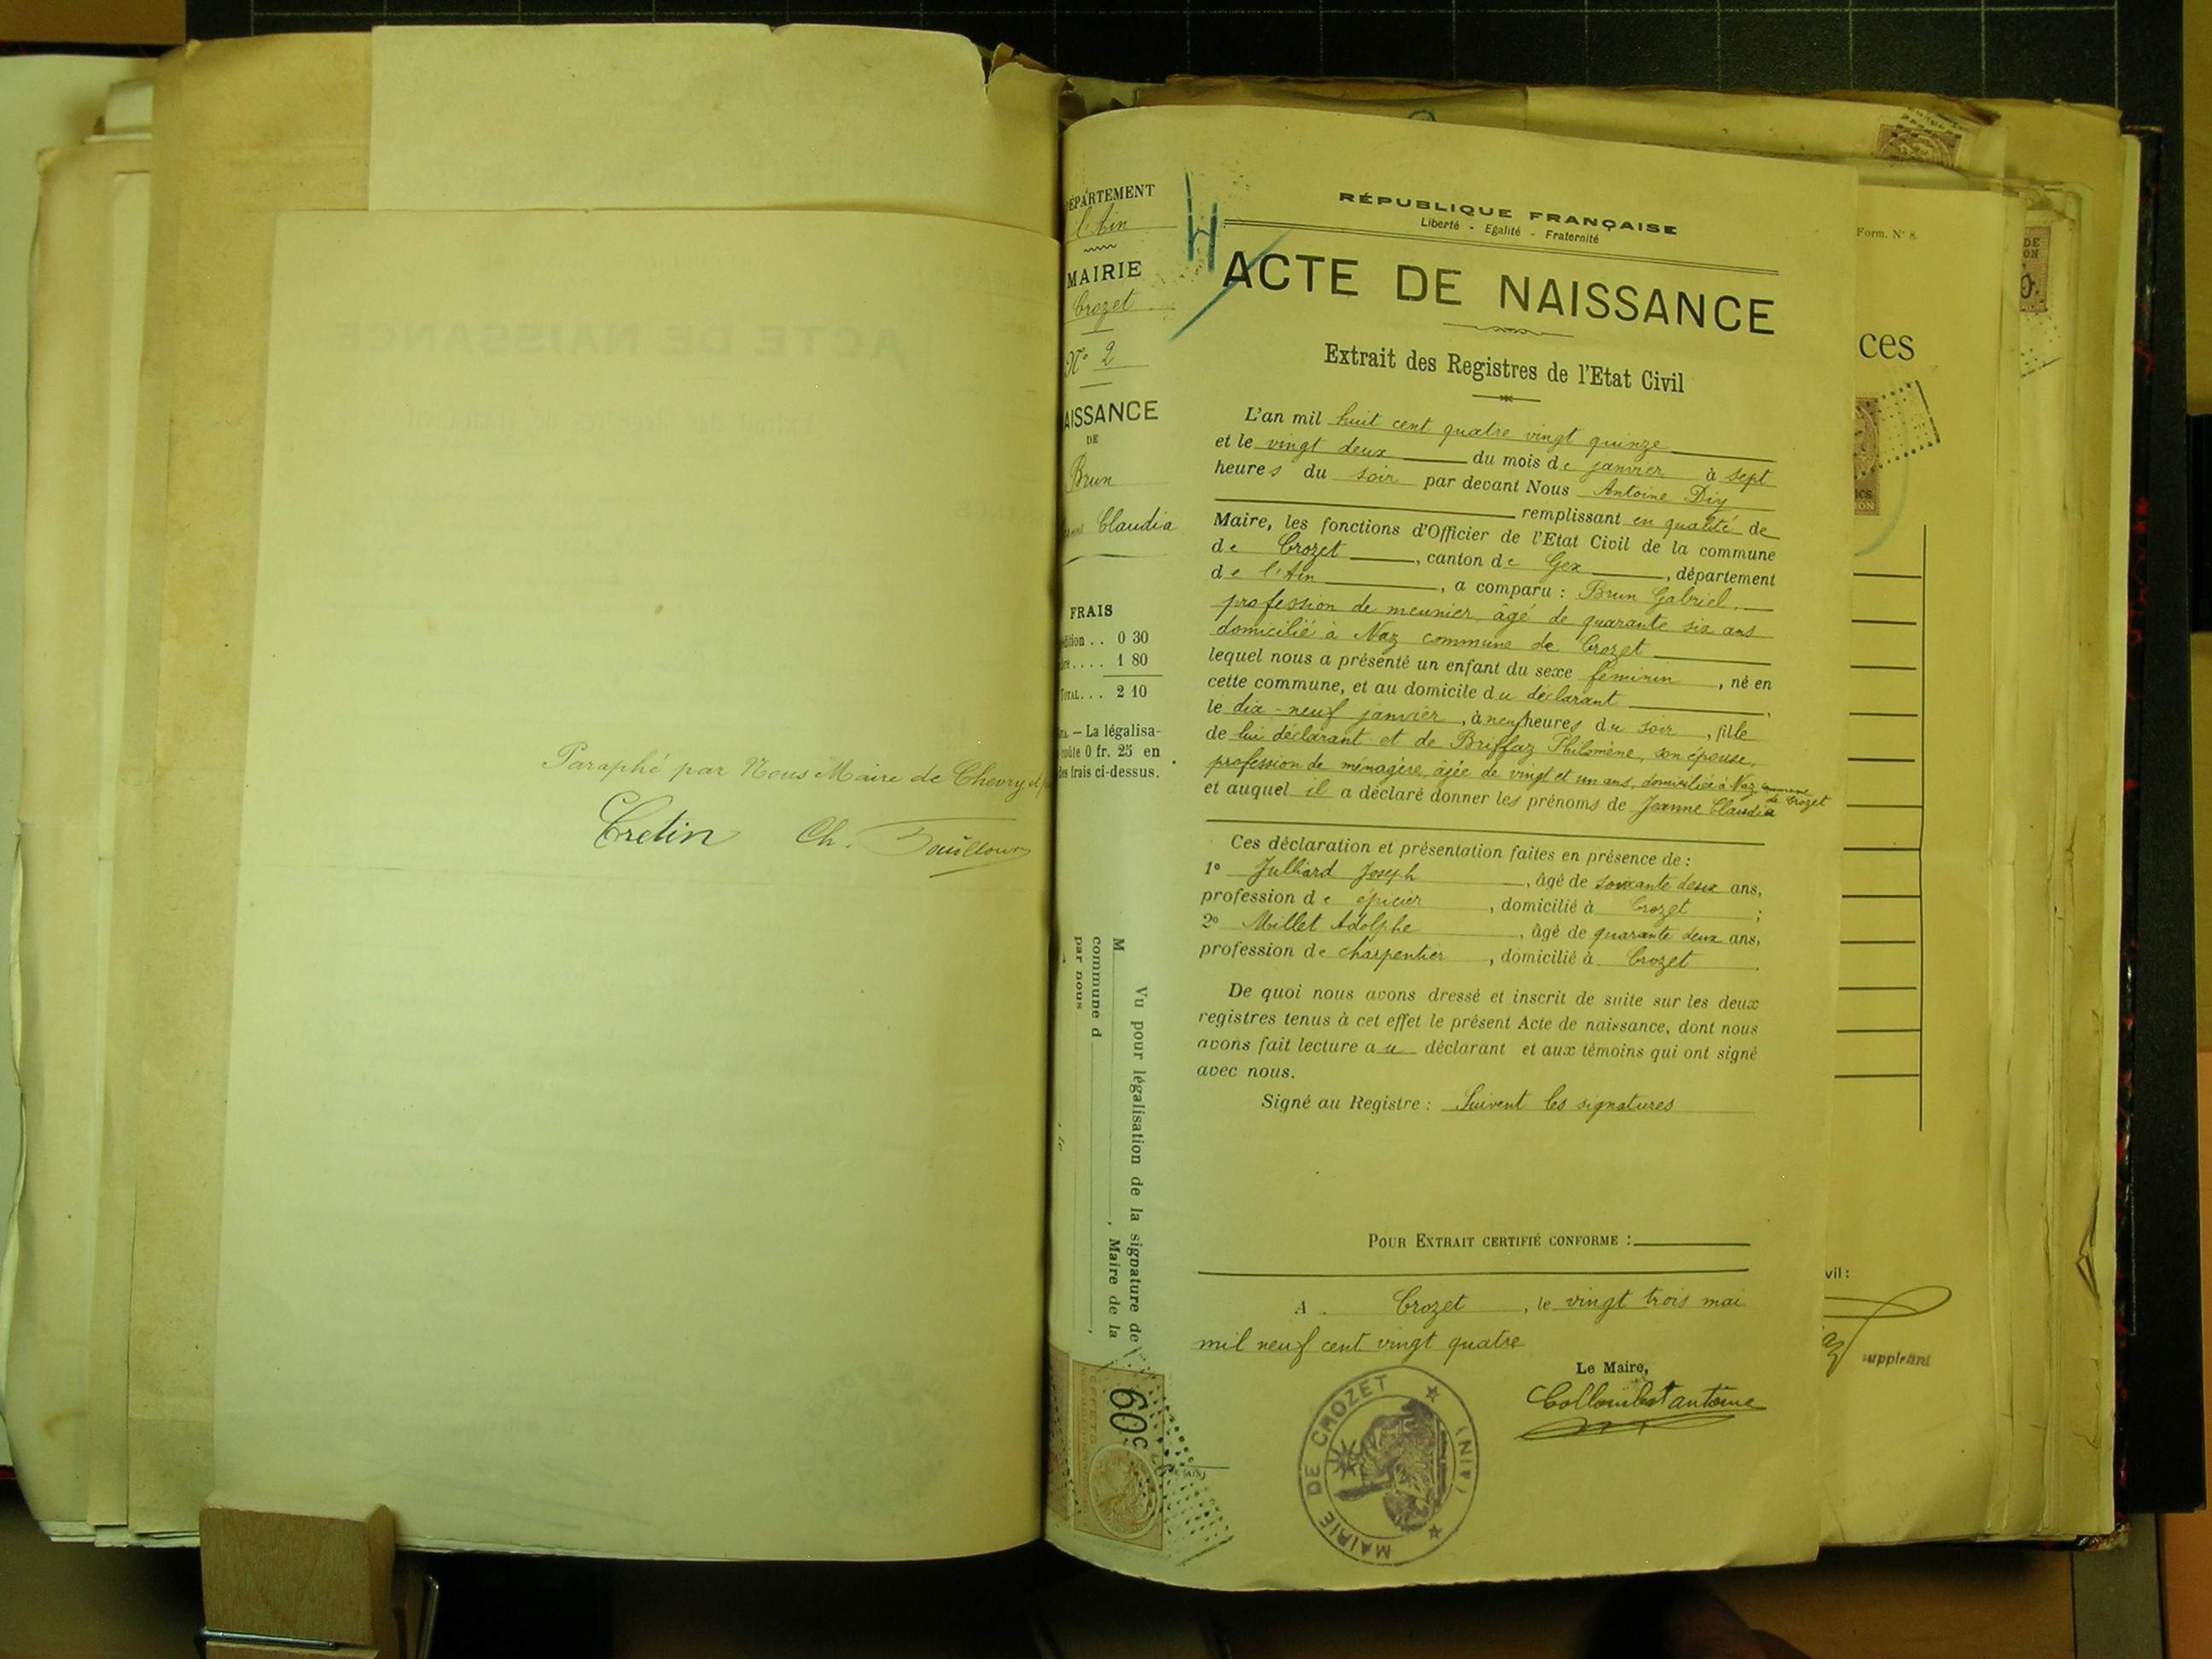 Paraphé par Nous Maire de Chevry et
Cretin Ch.
DÉPARTEMENT
l'Ain
MAIRIE
Crozet
N° 2
NAISSANCE
DE
Brun
Claudia
FRAIS
0 30
1 80
TOTAL... 2 10
— La légalisa-
coûte 0 fr. 25 en
des frais ci-dessus.
Vu pour légalisation de la signature de
M , Maire de la
commune d ,
par nous
60c
RÉPUBLIQUE FRANÇAISE
Liberté - Egalité - Fraternité
ACTE DE NAISSANCE
Extrait des Registres de l'Etat Civil
L'an mil huit cent quatre vingt quinze
et le vingt deux du mois de janvier à sept
heures du soir par devant Nous Antoine Diy
remplissant en qualité de
Maire, les fonctions d'Officier de l'Etat Civil de la commune
de Crozet, canton de Gex, département
de l'Ain, a comparu : Brun Gabriel,
profession de meunier, âgé de quarante six ans
domicilié à Naz commune de Crozet
lequel nous a présenté un enfant du sexe féminin, né en
cette commune, et au domicile du déclarant,
le dix-neuf janvier, à neuf heures du soir, fille
de lui déclarant et de Briffaz Philomène, son épouse,
profession de ménagère, âgée de vingt et un ans, domiciliée à Naz commune de Crozet
et auquel il a déclaré donner les prénoms de Jeanne Claudia
Ces déclaration et présentation faites en présence de :
1° Julliard Joseph, âgé de soixante deux ans,
profession de épicier, domicilié à Crozet ;
2° Millet Adolphe, âgé de quarante deux ans,
profession de charpentier, domicilié à Crozet.
De quoi nous avons dressé et inscrit de suite sur les deux
registres tenus à cet effet le présent Acte de naissance, dont nous
avons fait lecture au déclarant et aux témoins qui ont signé
avec nous.
Signé au Registre : Suivent les signatures
POUR EXTRAIT CERTIFIÉ CONFORME :
A Crozet, le vingt trois mai
mil neuf cent vingt quatre
Le Maire,
Collombet antoine
MAIRIE DE CROZET (AIN)
Form. N° 8.
ces
vil :
suppléant